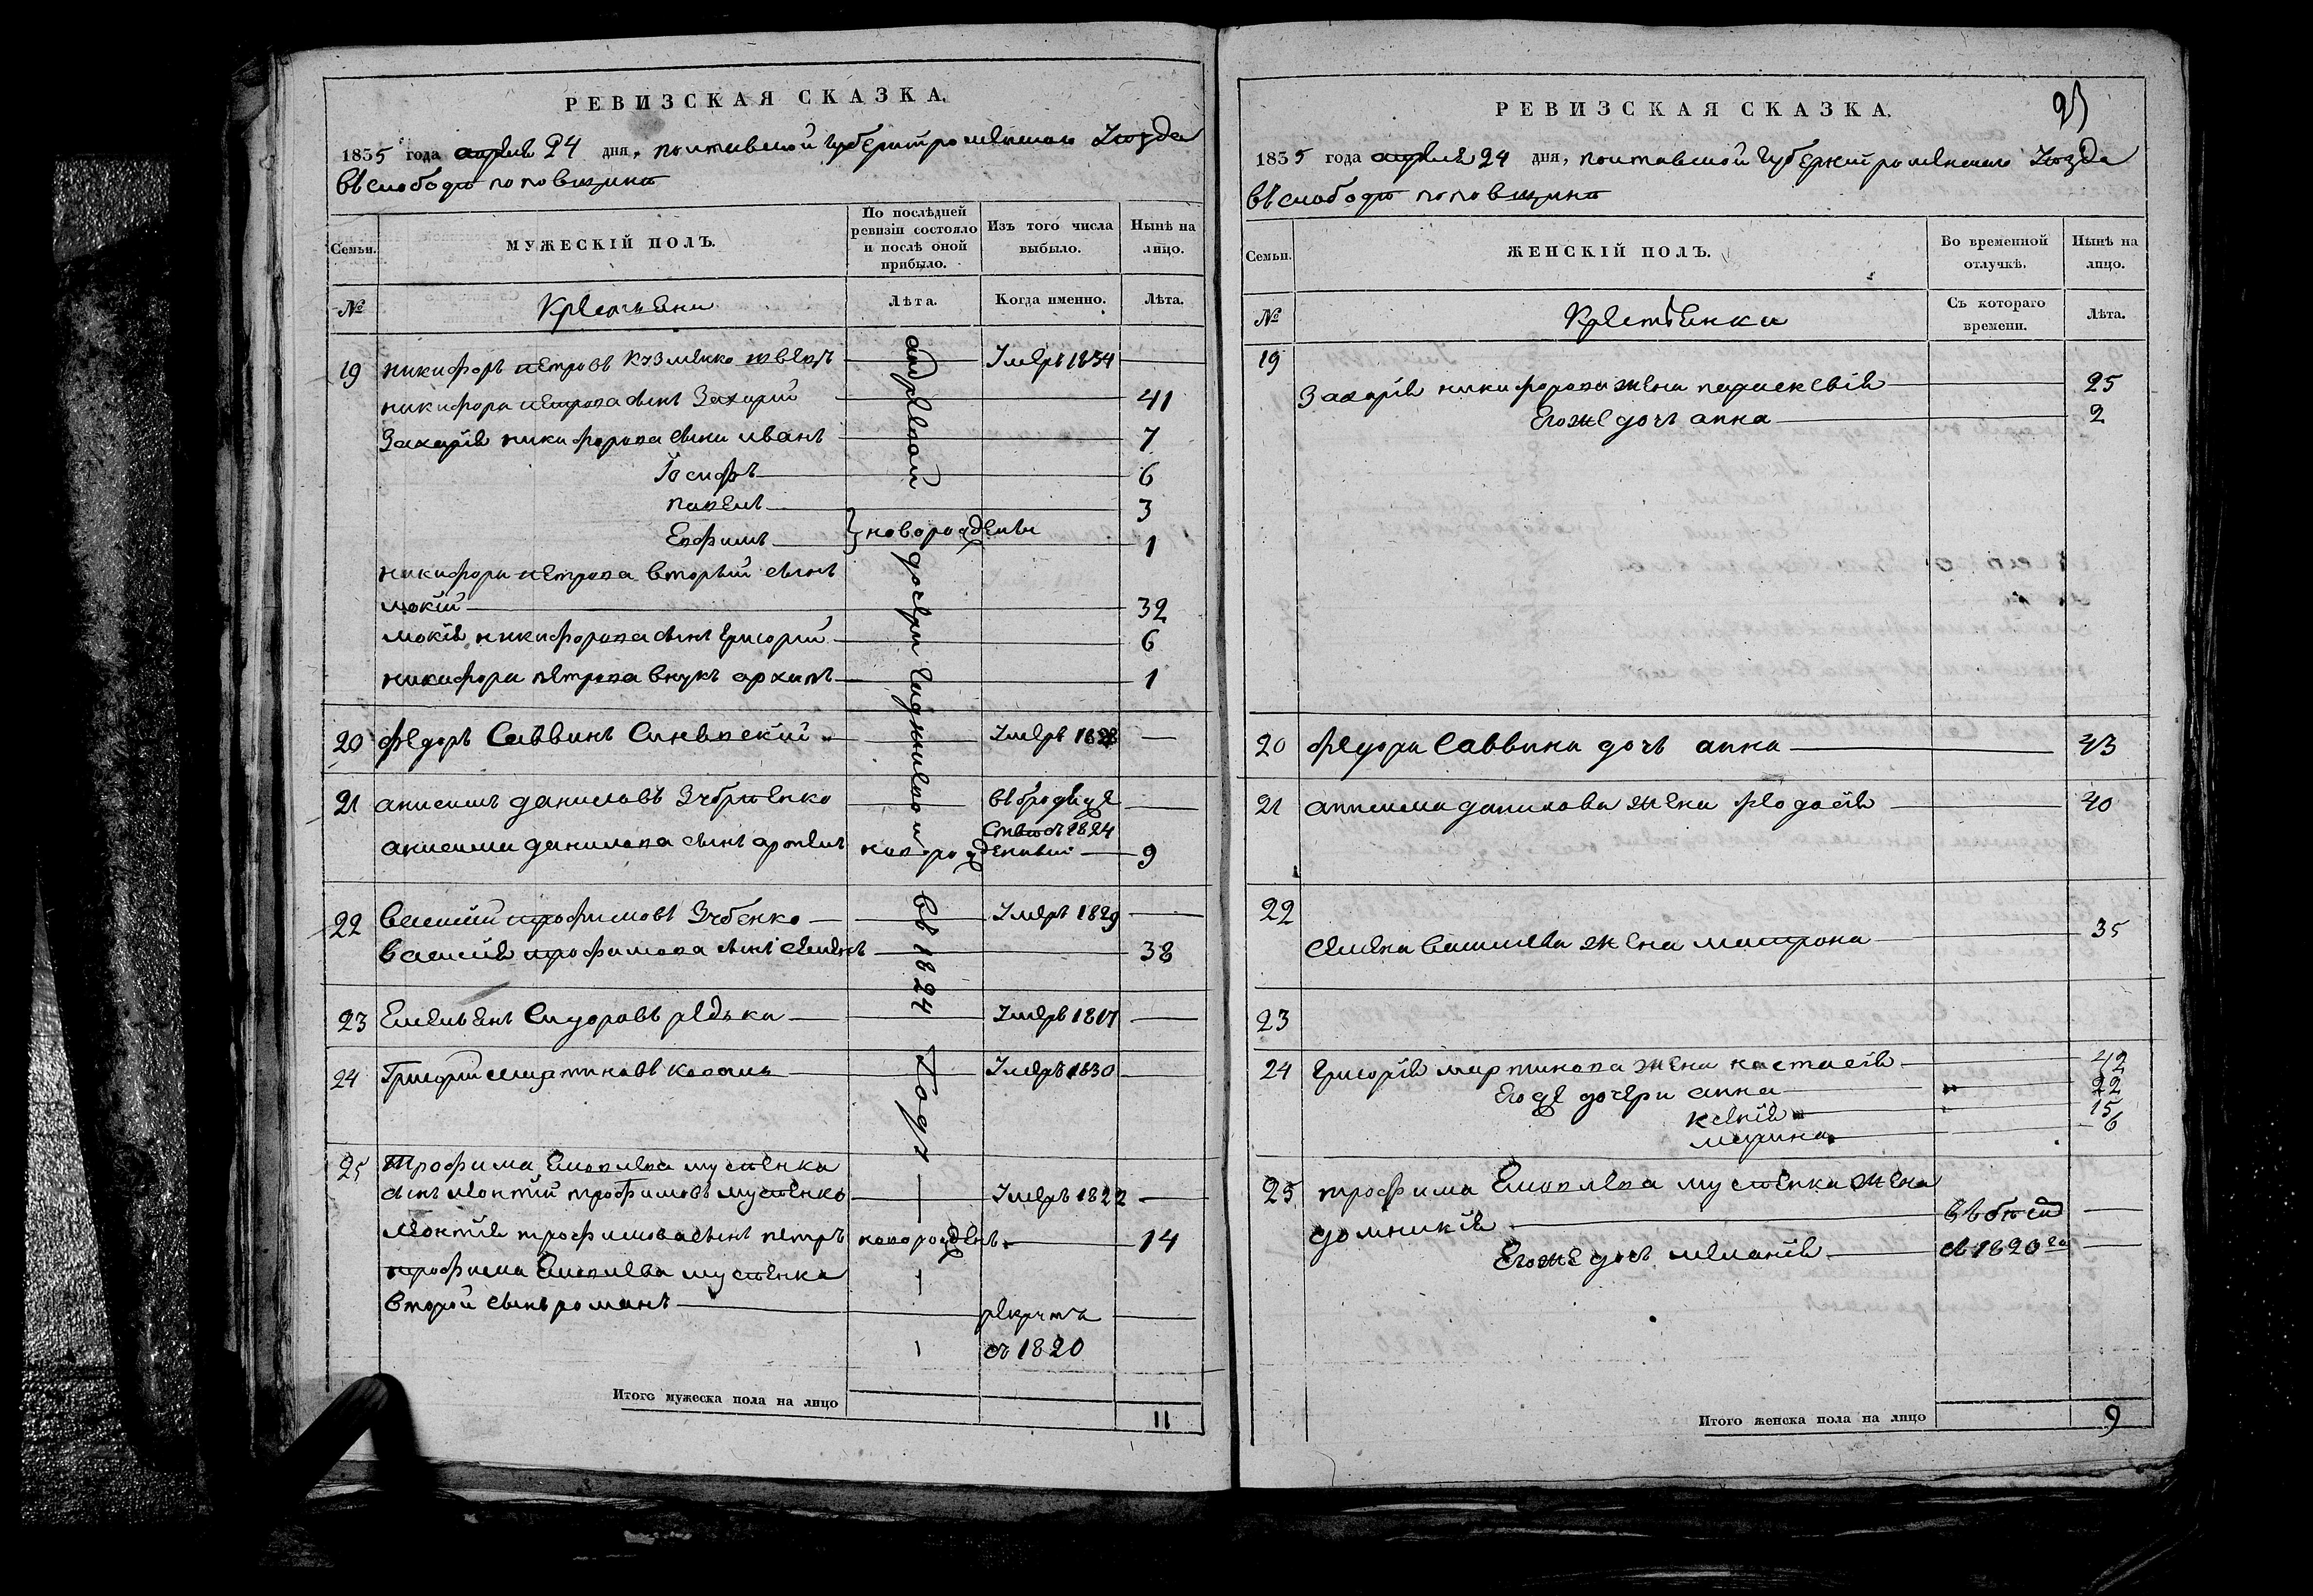 РЕВИЗСКАЯ СКАЗКА.
1835 года апреля 24 дня, полтавской губерни роменского уезда
въ слободе поповщине
Семьи.
МУЖЕСКІЙ ПОЛЪ.
По послѣдней ревизіи состояло и послѣ оной прибыло.
Изъ того числа выбыло.
Нынѣ на лицо.
№
Крестьяни
Лѣта.
Когда именно.
Лѣта.
19 никифоръ петровъ кузменко умеръ 1834
никифора петрова сынъ Захарій 41
Захарія никифорова сыни иванъ 7
Іосифъ 6
павелъ 3
Евфимъ } новорожденъи 1
никифора петрова вторый сынъ
мокій 32
мокія никифорова сынъ григорій 6
никифора петрова внукъ архипъ 1
20 федоръ Саввинъ умеръ 1828
21 анисимъ даниловъ въ бродяже
стве съ 1824
анисима данилова сынъ новорожденный 9
22 василий трофимовъ Зубенко умеръ 1829
василія трофимова сынъ семенъ 38
23 Емельянъ Сидоровъ редька умеръ 1817
24 Григорий мартиновъ умеръ 1830
25 Трофима мусиенка
сынъ леонтій трофимовъ мусиенко умеръ 1822
леонтія трофимова сынъ петръ новорожденъ 14
трофима мусиенка
второй сынъ романъ рекрутъ
съ 1820
въ 1824 году
Итого мужеска пола на лицо 11
РЕВИЗСКАЯ СКАЗКА.
1835 года апреля 24 дня, полтавской губерни роменского уезда
въ слободе поповщине
Семьи.
ЖЕНСКІЙ ПОЛЪ.
Во временной отлучкѣ.
Нынѣ на лицо.
№
Крестьянки
Съ котораго времени.
Лѣта.
19
Захарія никифорова жена параскевія 25
Егоже дочь анна 2
20 федора Саввина дочь анна 43
21 анисима данилова жена феодосія 40
22
семена васильева жена матрона 35
23
24 григорія мартинова жена настасія 42
его же дочери анна 22
ксенія 15
марина 6
25 трофима мусиенка жена
домникія въ бегах
Егоже дочь меланія съ 1820 го
Итого женска пола на лицо 9